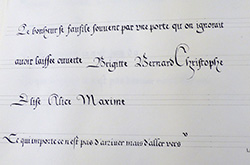 Le bonheur se faufile souvent par une porte qu'on ignorait
avoir laissée ouverte Brigitte Bernard Christophe
Elise Alice Maxime
Ce qui importe ce n'est pas d'arriver mais d'aller vers